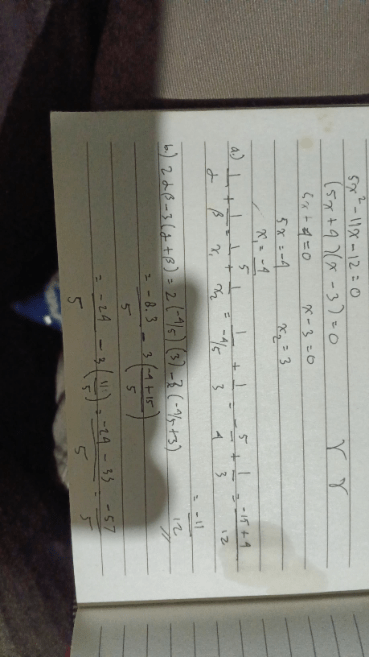 5x² - 11x - 12 = 0
(5x + 4)(x - 3) = 0
5x + 4 = 0    x - 3 = 0
5x = -4    x₂ = 3
x₁ = -4/5
a) 1/α + 1/β = 1/x₁ + 1/x₂ = 1/(-4/5) + 1/3 = -5/4 + 1/3 = (-15 + 4)/12
= -11/12
b) 2αβ - 3(α + β) = 2(-4/5)(3) - 3(-4/5 + 3)
= -8.3/5 - 3((-4 + 15)/5)
= -24/5 - 3(11/5) = (-24 - 33)/5 = -57/5